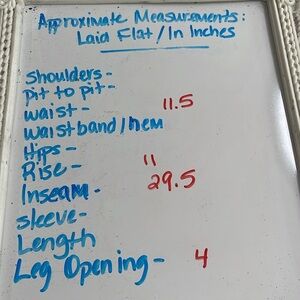 Approximate Measurements:
Laid Flat/In Inches
Shoulders -
pit to pit -
waist - 11.5
waistband/hem
Hips -
Rise - 11
Inseam - 29.5
sleeve -
Length
Leg Opening - 4